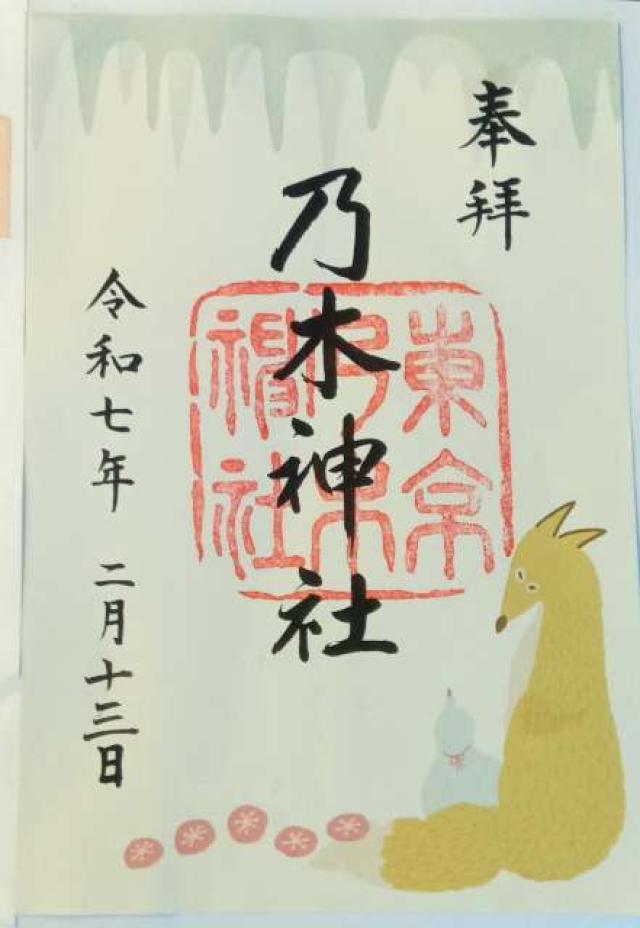 奉拝
乃木神社
東京
乃木
神社
令和七年 二月十三日